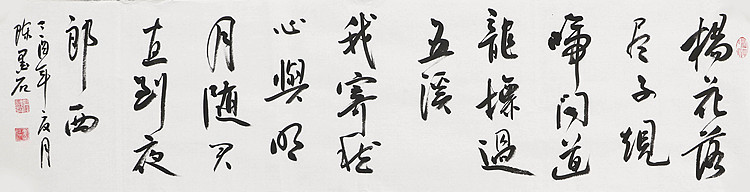 楊花落
尽子規
啼闻道
龍標過
五溪
我寄愁
心與明
月随君
直到夜
郎西
丁酉年夏月
陈墨石